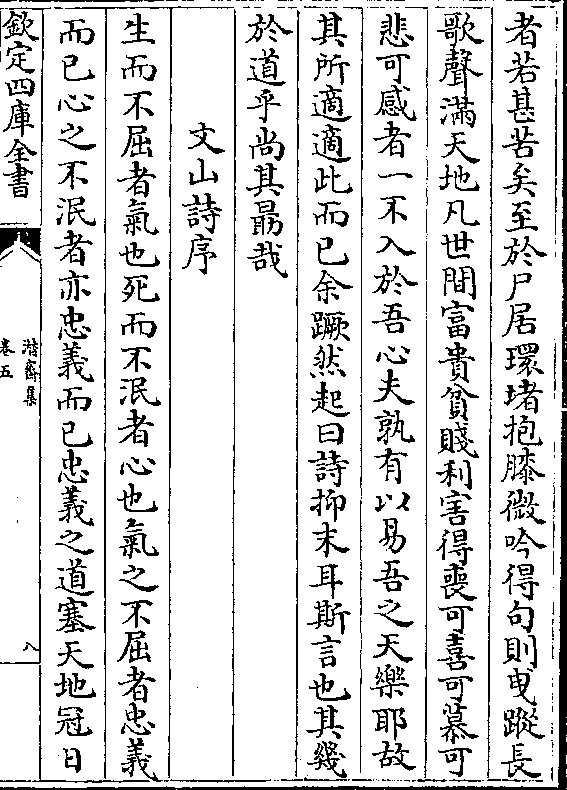 者若甚苦矣至於尸居環堵抱膝微吟得句則曵蹤長
歌聲滿天地凡世間富貴貧賤利害得喪可喜可慕可
悲可感者一不入於吾心夫孰有以易吾之天樂耶故
其所適適此而已余蹶然起曰詩抑末耳斯言也其幾
於道乎尚其朂哉
文山詩序
生而不屈者氣也死而不泯者心也氣之不屈者忠義
而已心之不泯者亦忠義而已忠義之道塞天地冠日
欽定四庫全書
潜齋集
卷五
八